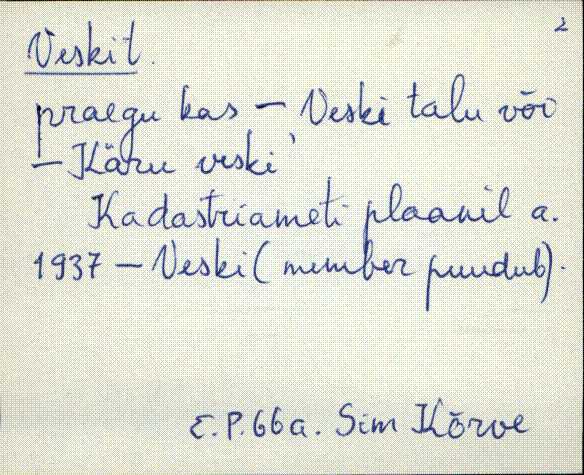 2
Veskil.
praegu kas – Veski talu või
– Käru veski
Kadastriameti plaanil a.
1937 – Veski (number puudub).
E.P. 66a. Sim Kõrve